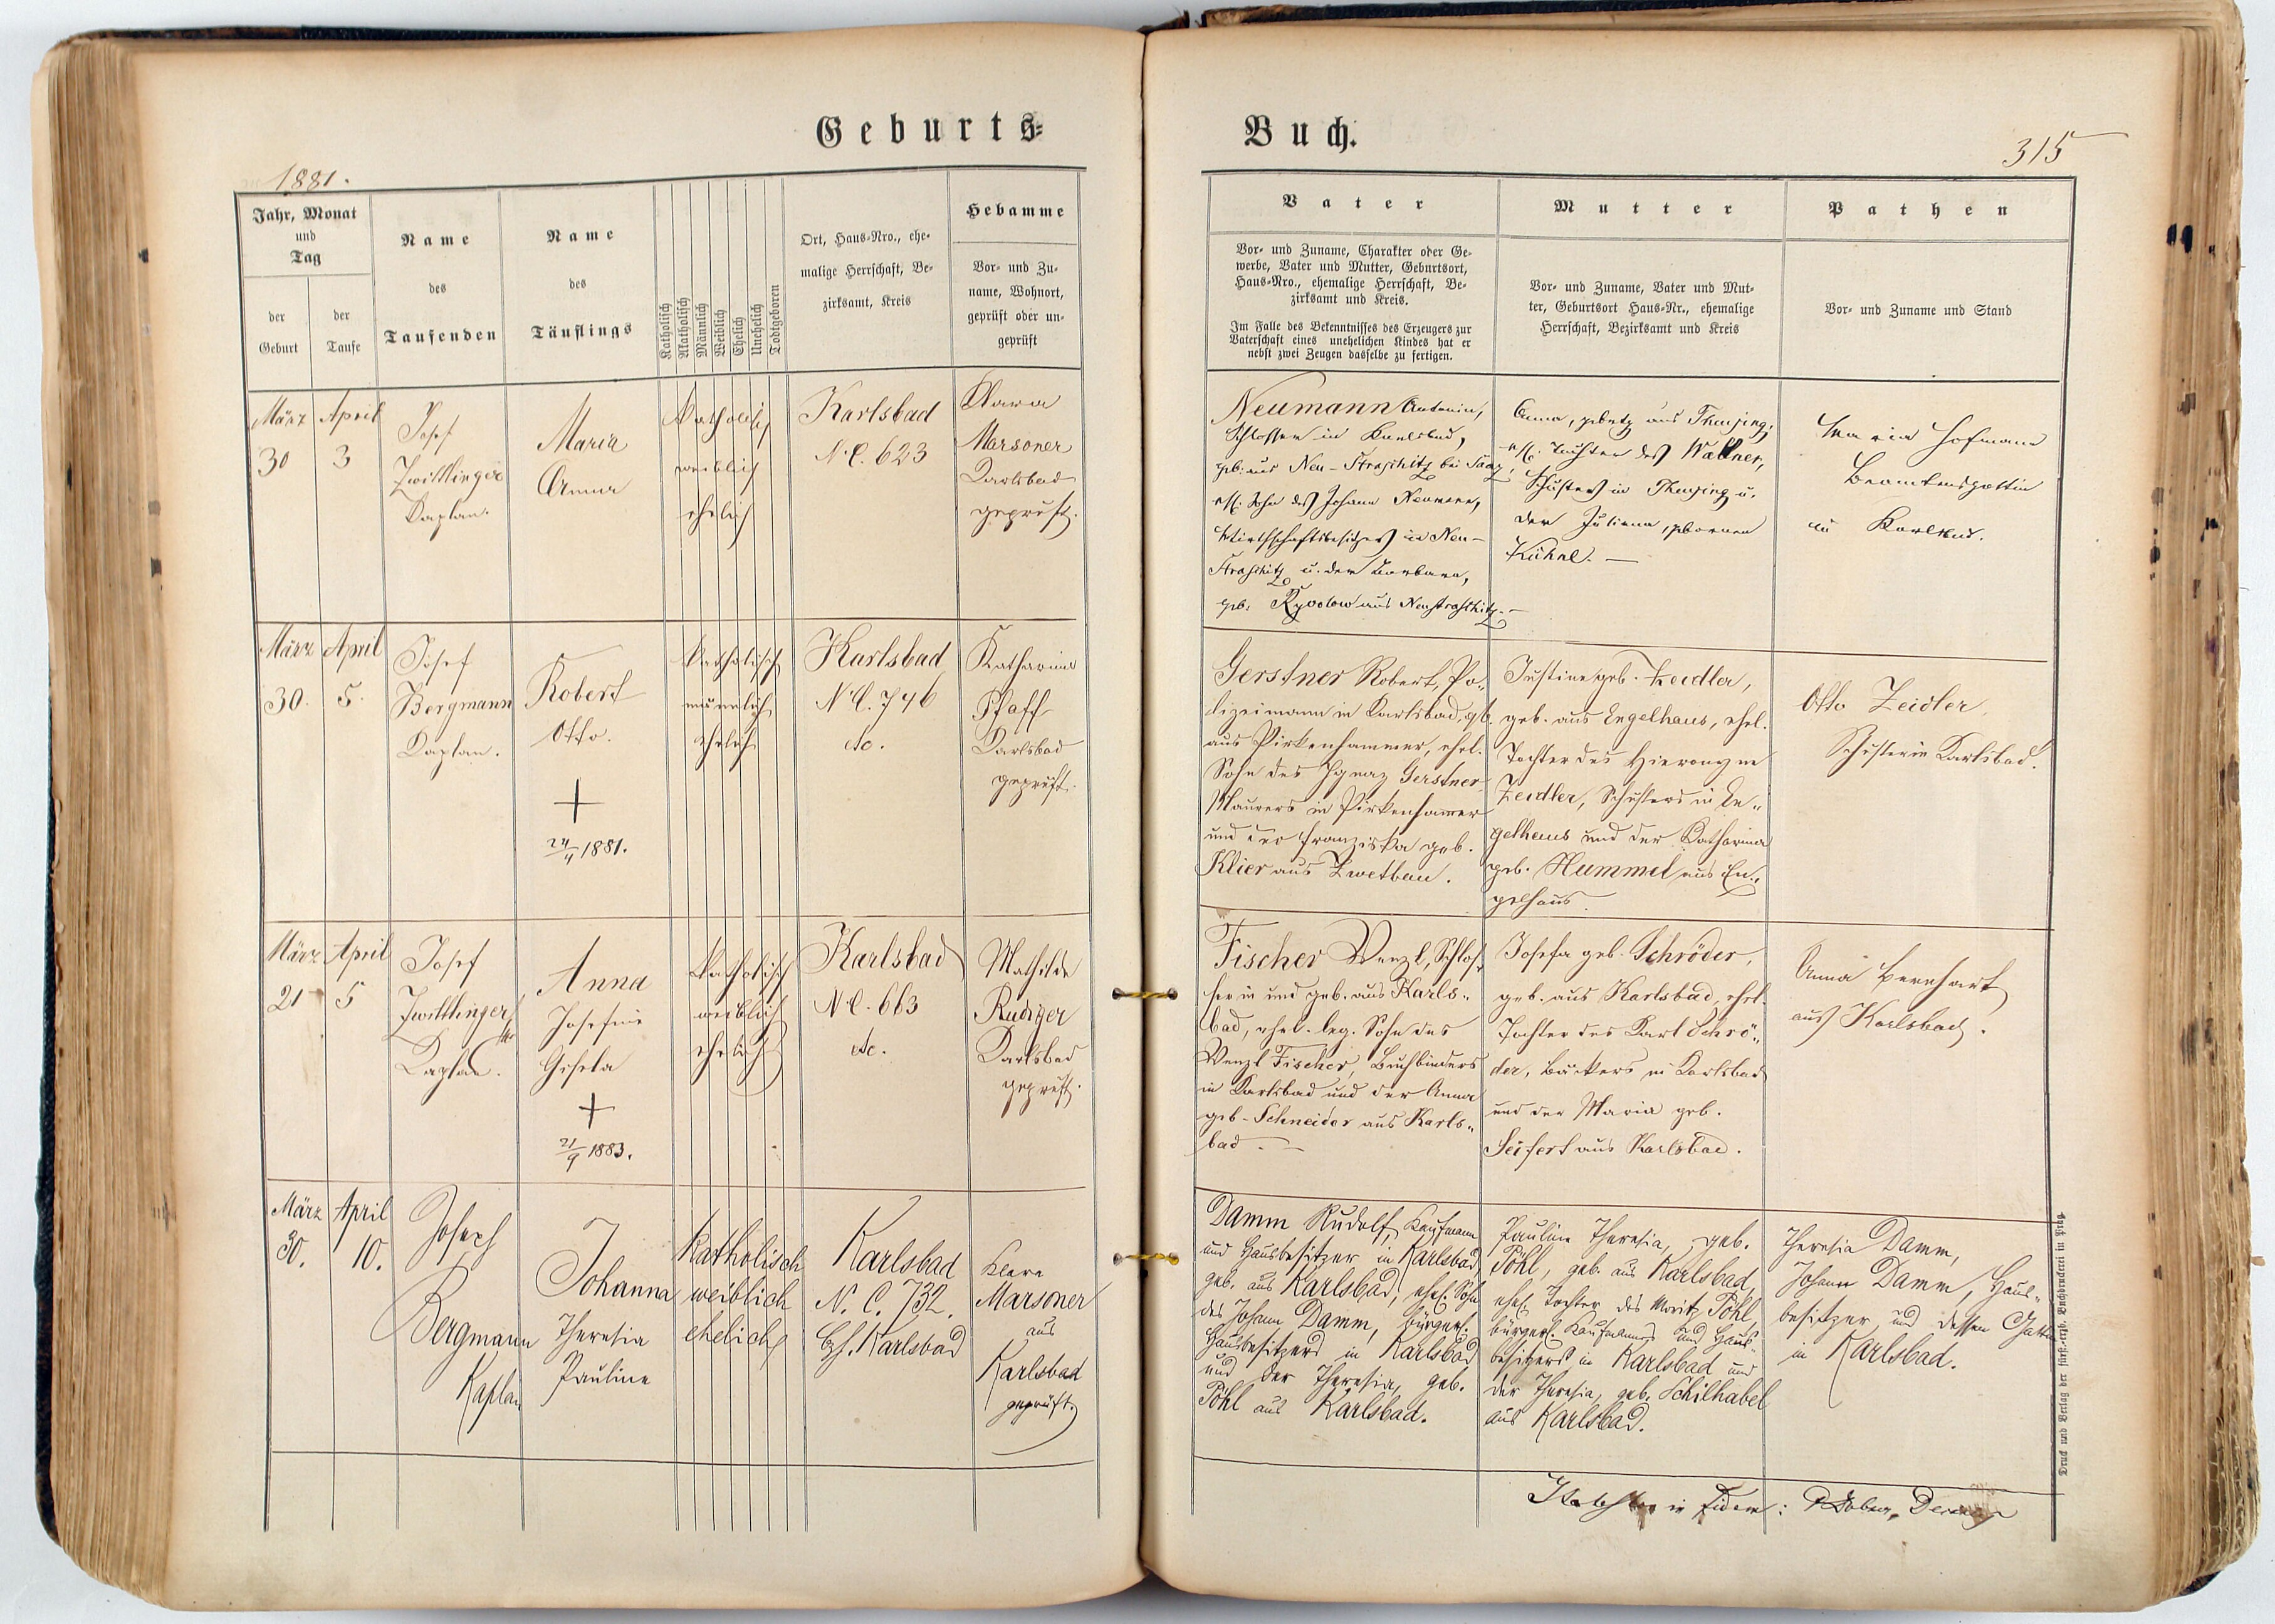 Geburts=
1881.
Jahr, Monat
und
Tag
der
Geburt
der
Taufe
Name
des
Taufenden
Name
des
Täuflings
Katholisch
Akatholisch
Männlich
Weiblich
Ehelich
Unehelich
Todtgeboren
Ort, Haus-Nro., ehe-
malige Herrschaft, Be-
zirksamt, Kreis
Hebamme
Vor- und Zu-
name, Wohnort,
geprüft oder un-
geprüft
März
30
April
3
Josef
Zwittlinger
Kaplan.
Maria
Anna
katholisch
weiblich
ehelich
Karlsbad
N.C. 623
Klara
Marsoner
Karlsbad
geprüft.
März
30.
April
5.
Josef
Bergmann
Kaplan.
Robert
Otto.
+
24/4 1881.
katholisch
männlich
ehelich
Karlsbad
N.C. 746
etc.
Katharina
Pfaff
Karlsbad
geprüft.
März
21
April
5
Josef
Zwittlinger
Kaplan.
Anna
Josefine
Gisela
+
21/9 1883.
katholisch
weiblich
ehelich
Karlsbad
N.C. 663
etc.
Mathilde
Rudiger
Karlsbad
geprüft.
März
30.
April
10.
Joseph
Bergmann
Kaplan
Johanna
Theresia
Pauline
katholisch
weiblich
ehelich
Karlsbad
N. C. 732.
Bzh. Karlsbad
Klara
Marsoner
aus
Karlsbad
geprüft.
Buch.
315
Vater
Vor- und Zuname, Charakter oder Ge-
werbe, Vater und Mutter, Geburtsort,
Haus-Nro., ehemalige Herrschaft, Be-
zirksamt und Kreis.
Im Falle des Bekenntnisses des Erzeugers zur
Vaterschaft eines unehelichen Kindes hat er
nebst zwei Zeugen dasselbe zu fertigen.
Mutter
Vor- und Zuname, Vater und Mut-
ter, Geburtsort Haus-Nr., ehemalige
Herrschaft, Bezirksamt und Kreis
Pathen
Vor- und Zuname und Stand
Neumann Antonin,
Schlosser in Karlsbad,
geb. aus Neu-Straschitz bei Saaz,
ehl. Sohn des Johann Neumann,
Wirthschaftsbesitzers in Neu-
Straschitz u. der Barbara,
geb. aus Neustraschitz.
Anna, gebtg aus
ehl. Tochter des Wallner,
Schusters in u.
der Juliana, gebornen
Kühnl. —
Maria Hofmann
Beamtensgattin
in Karlsbad.
Gerstner Robert, Po-
lizeimann in Karlsbad, gb.
aus Pirkenhammer, ehel.
Sohn des Ignaz Gerstner
Maurers in Pirkenhammer
und der Franziska geb.
Klier aus Zwetbau.
Justine geb. Zeidler,
geb. aus Engelhaus, ehel.
Tochter des Hieronyme
Zeidler, Schusters in En-
gelhaus und der Katharina
geb. Hummel aus En-
gelhaus.
Otto Zeidler
Schuster in Karlsbad.
Fischer Wenzl, Schlos-
ser in und geb. aus Karls-
bad, ehel. leg. Sohn des
Wenzl Fischer, Buchbinders
in Karlsbad und der Anna
geb. Schneider aus Karls-
bad. —
Josefa geb. Schröder,
geb. aus Karlsbad, ehel.
Tochter des Karl Schrö-
der, Bäckers in Karlsbad
und der Maria geb.
Seifert aus Karlsbad.
Anna Bernhart
aus Karlsbad.
Damm Rudolf, Kaufmann
und Hausbesitzer in Karlsbad,
geb. aus Karlsbad, ehel. Sohn
des Johann Damm, bürgerl.
Hausbesitzers in Karlsbad
und der Theresia, geb.
Pöhl aus Karlsbad.
Pauline Theresia, geb.
Pöhl, geb. aus Karlsbad,
ehel. Tochter des Moritz Pöhl,
bürgerl. Kaufmanns und Haus-
besitzers in Karlsbad und
der Theresia, geb. Schilhabel
aus Karlsbad.
Theresia Damm,
Johann Damm, Haus-
besitzer und dessen Gattin
in Karlsbad.
in fidem:
Druck und Verlag der fürst.-erzb. Buchdruckerei in Prag.